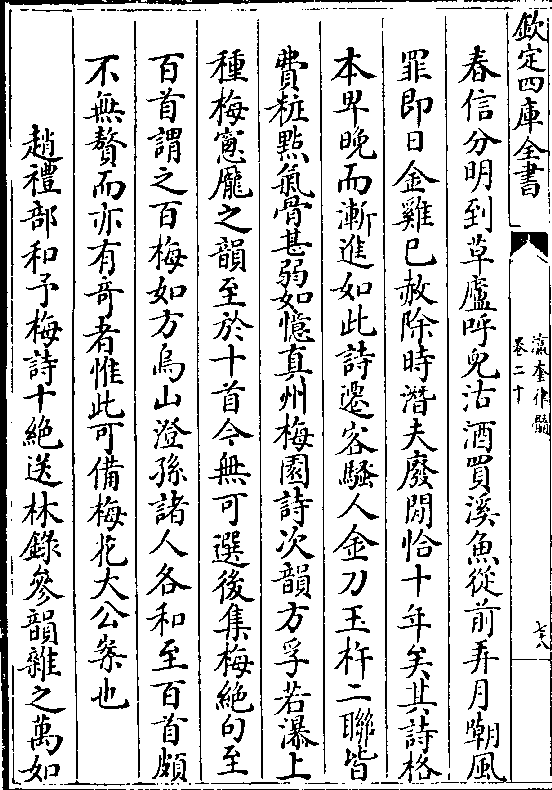 欽定四庫全書
瀛奎律髓
卷二十
七八
春信分明到草廬呼兒沽酒買溪魚從前弄月嘲風
罪即日金雞已赦除時潛夫廢閒恰十年矣其詩格
本卑晚而漸進如此詩遷客騷人金刀玉杵二聯皆
費粧㸃氣骨甚弱如憶真州梅園詩次韻方孚若瀑上
種梅窻龎之韻至於十首今無可選後集梅絶句至
百首謂之百梅如方烏山澄孫諸人各和至百首頗
不無贅而亦有竒者惟此可備梅花大公案也
趙禮部和予梅詩十絶送林錄參韻雜之萬如